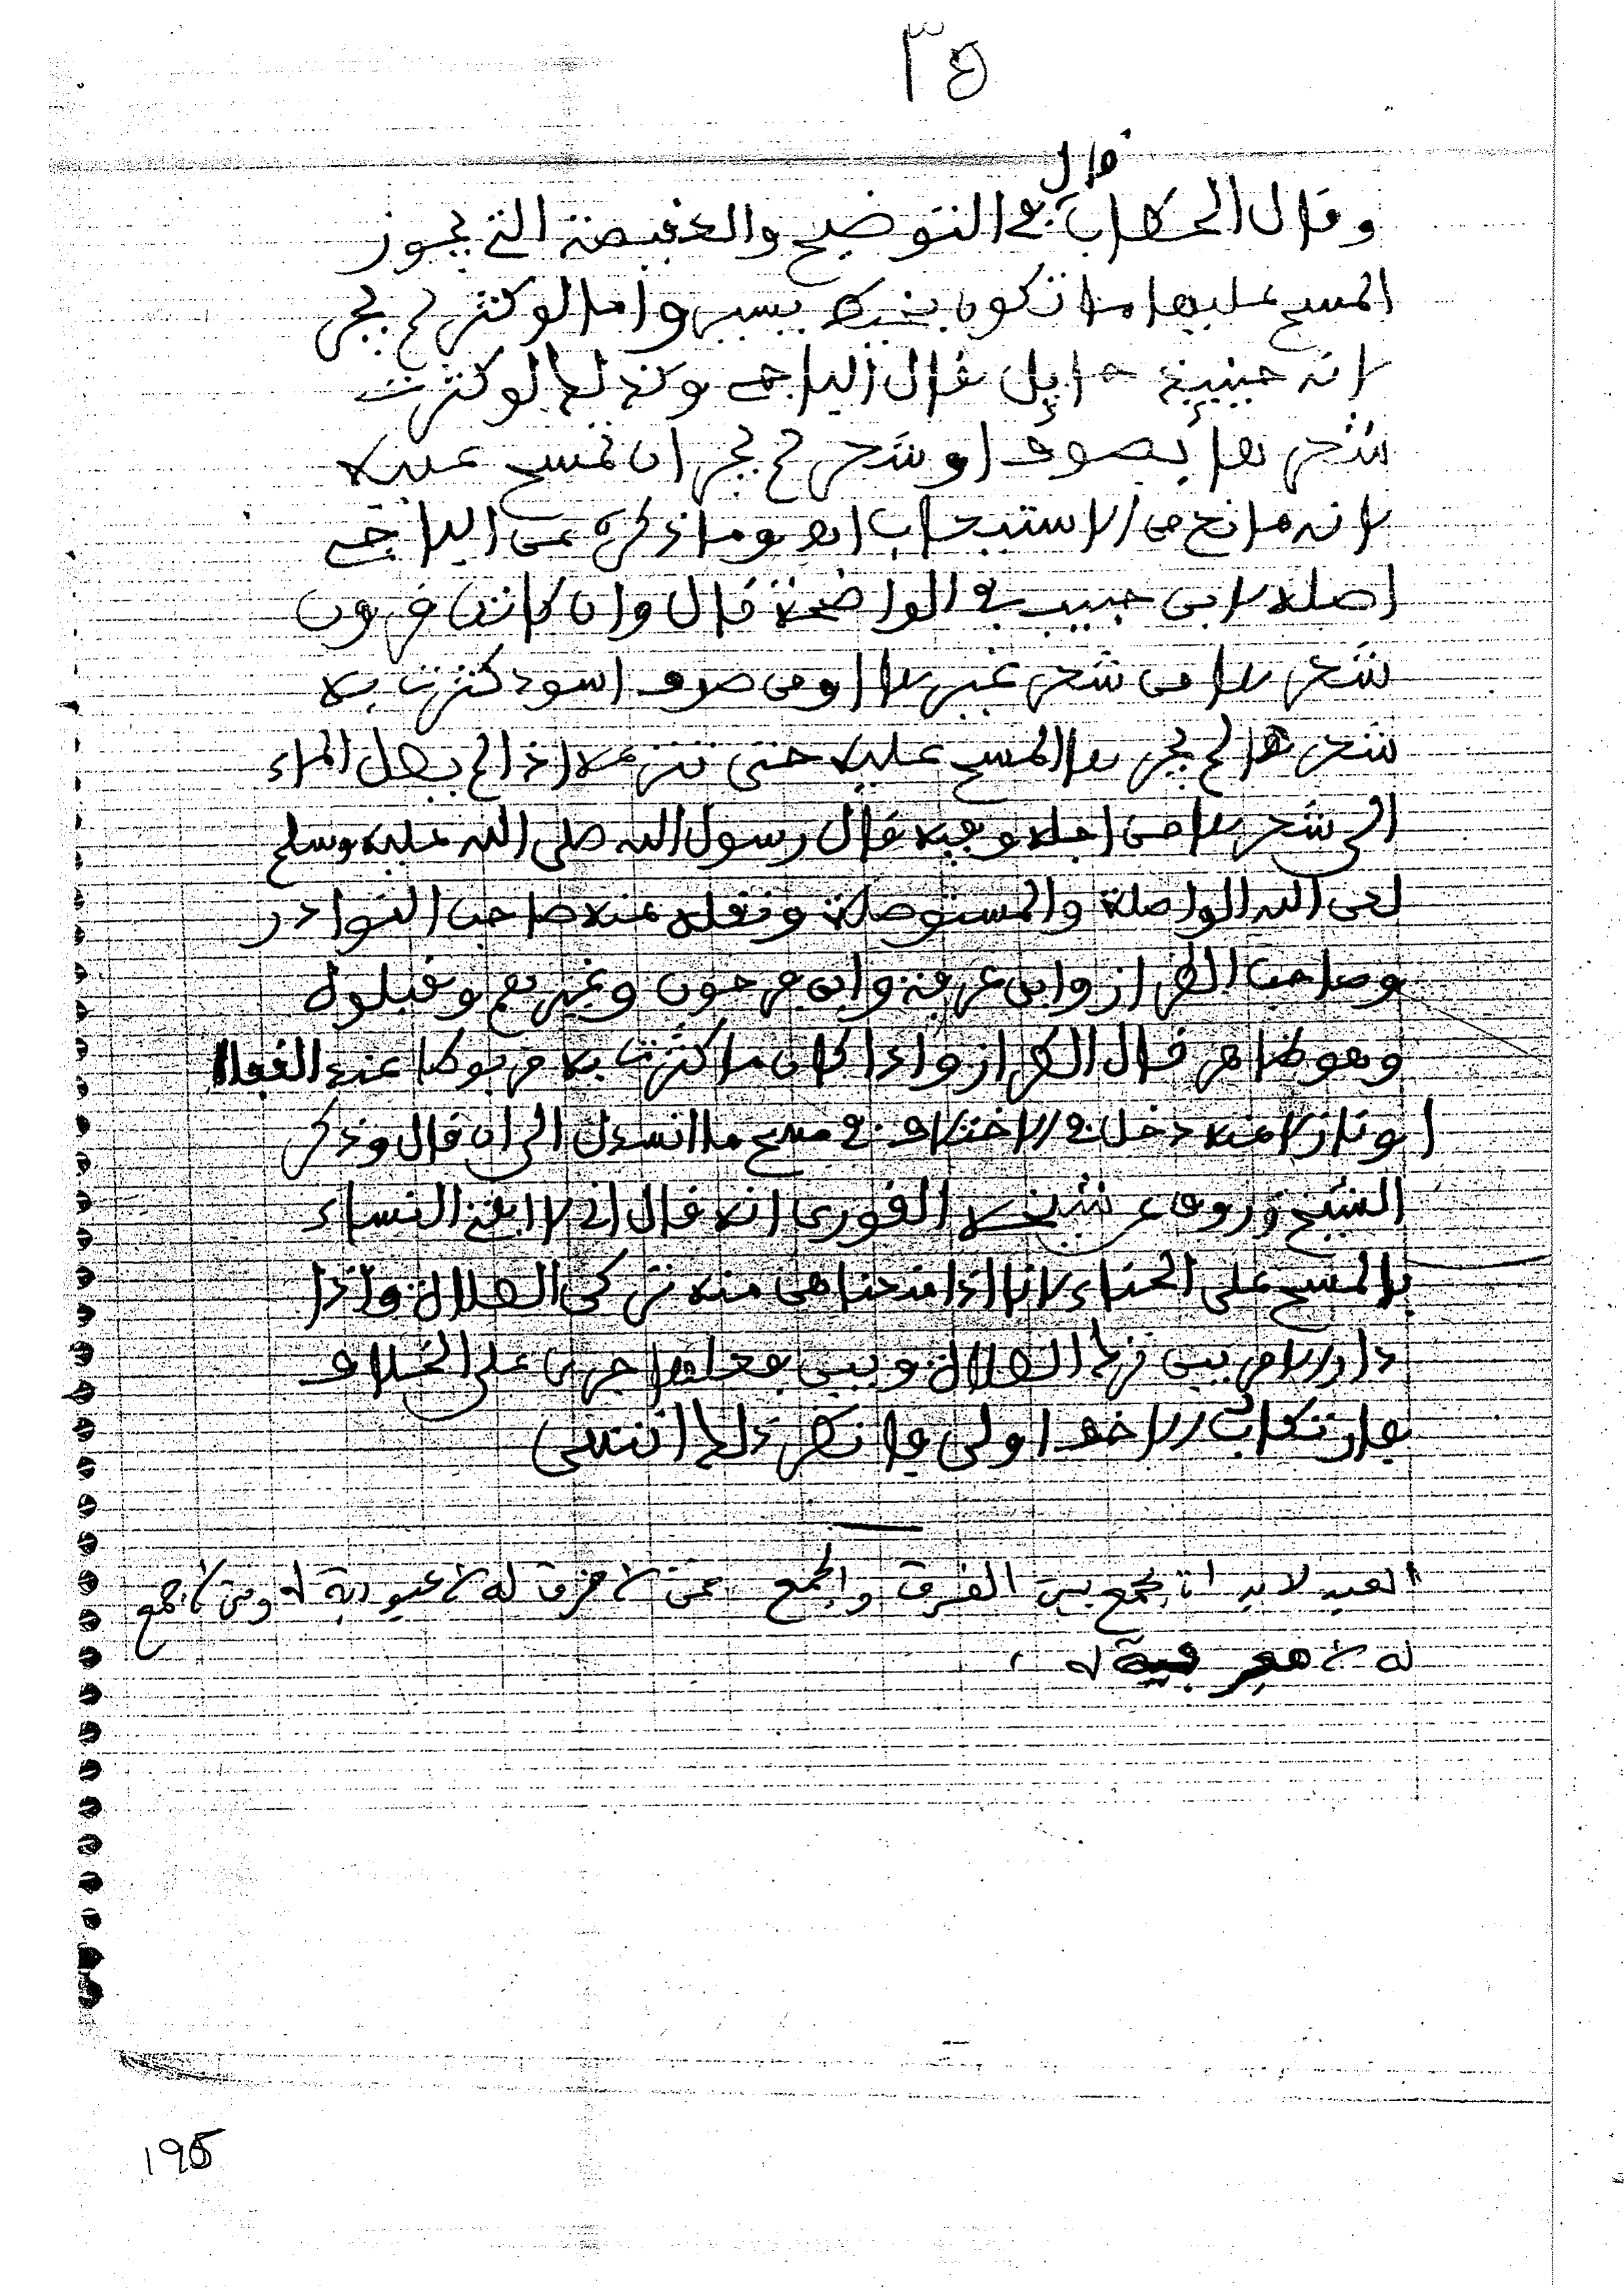 ٣٥
قال
وقال الحطاب في التوضيح والعقيصة التي يجوز
المسح عليها ما تكون بخيط يسير واما لو كثر لم يجز
لانه حينيذ حايل قال الباجي وكذلك لو كثرت
شعرها بصوف او شعر لم يجز ان تمسح عليه
لانه مانع من الاستيعاب اه وما ذكره عن الباجي
اصله لابن حبيب في الواضحة قال وان كانت قرون
شعرها من شعر غيرها او من صوف اسود كثرت به
شعرها لم يجز لها المسح عليه حتى تنزعه اذا لم يصل الماء
الى شعرها من اجله وفيه قال رسول الله صلى الله عليه وسلم
لعن الله الواصلة والمستوصلة ونقله عنه صاحب النوادر
وصاحب الطراز وابن عرفة وابن فرحون وغيرهم وقبلوه
وهو ظاهر قال الطراز واذا كان ما كثرت به مربوطا عند القفا
او نازلا منه دخل في الاختلاف في مسح ما انسدل الى ان قال وذكر
الشيخ زروق عن شيخه القوري انه قال اني لا افتي النساء
بالمسح على الحناء لانا اذا منعناهن منه تركن الصلاة واذا
دار الامر بين ترك الصلاة وبين فعلها جرى على الخلاف
فارتكاب الاخف اولى فانظر ذلك انتهى
العبد لابد ان يجمع بين الفرق والجمع فمن لا فرق له لا عبودية له ومن لا جمع
له لا معرفة له
195